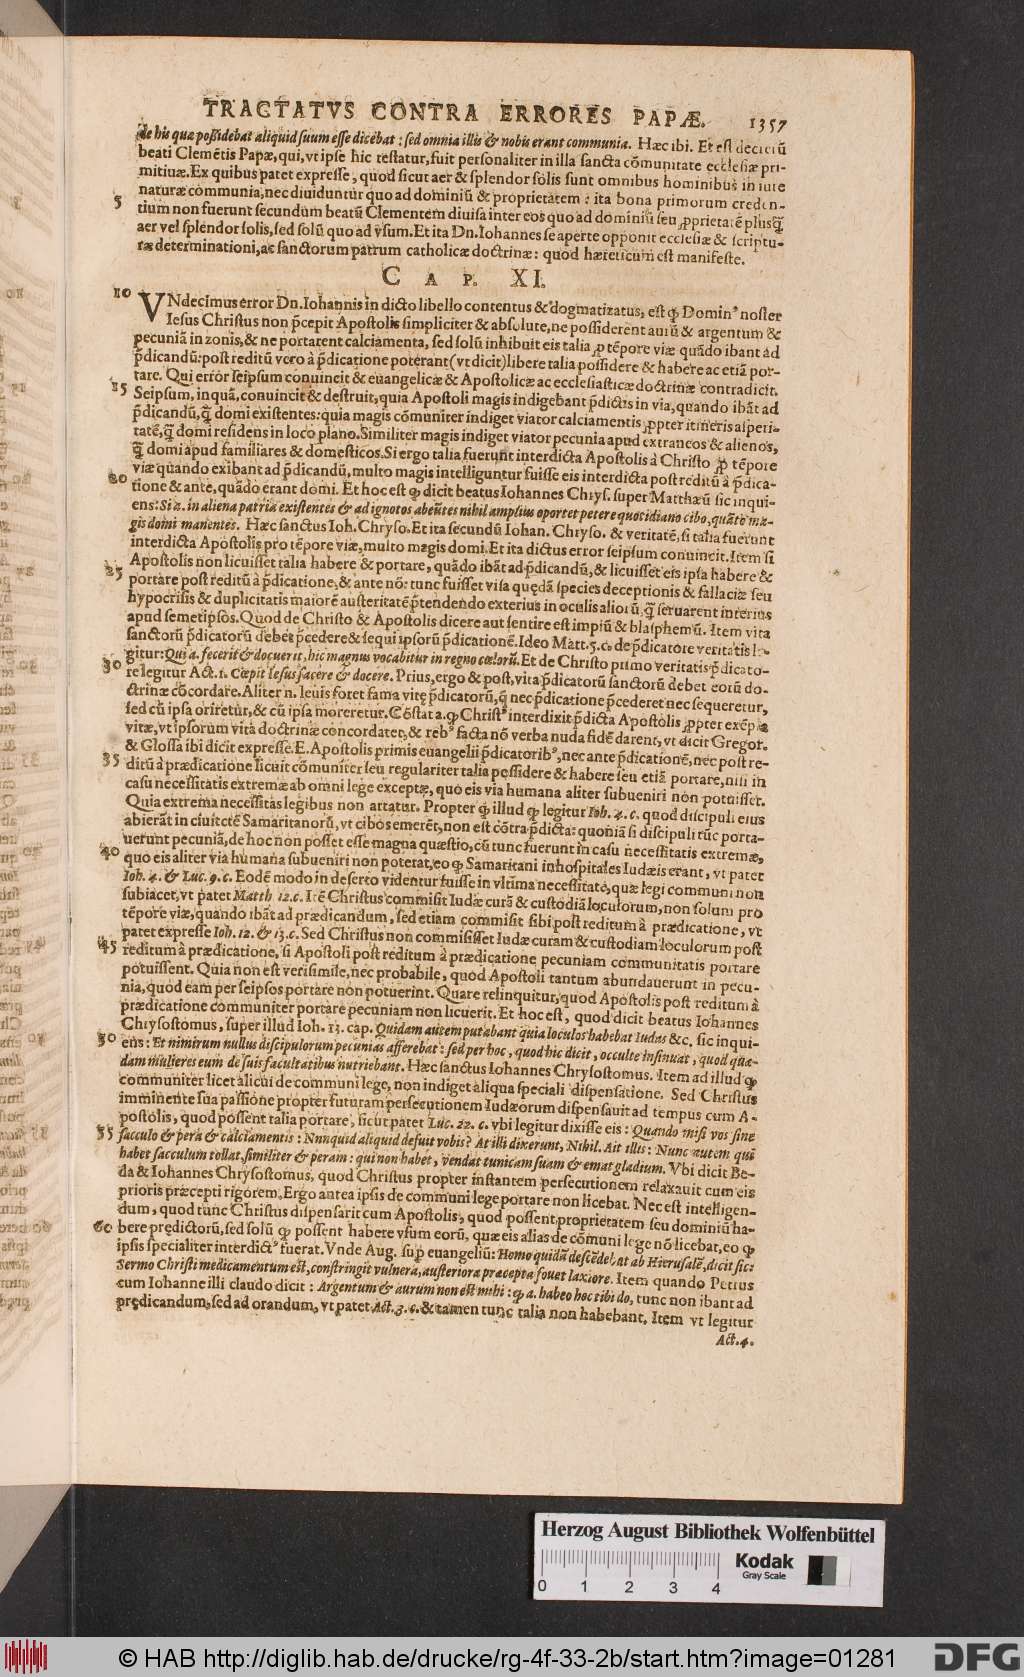 TRACTATVS CONTRA ERRORES PAPÆ. 1357
de his quæ possidebat aliquid suum esse dicebat: sed omnia illis & nobis erant communia. Hæc ibi. Et est deciciũ
beati Clemẽtis Papæ, qui, vt ipse hic testatur, fuit personaliter in illa sancta cõmunitate ecclesiæ pri-
mitiuæ. Ex quibus patet expresse, quod sicut aer & splendor solis sunt omnibus hominibus in iure
naturæ communia, nec diuiduntur quo ad dominiũ & proprietatem: ita bona primorum creden-
5 tium non fuerunt secundum beatũ Clementem diuisa inter eos quo ad dominiũ seu ꝓprietatẽ plusq̃
aer vel splendor solis, sed solũ quo ad vsum. Et ita Dn. Iohannes se aperte opponit ecclesiæ & scriptu-
ræ determinationi, ac sanctorum patrum catholicæ doctrinæ: quod hæreticum est manifeste.
CAP. XI.
10 VNdecimus error Dn. Iohannis in dicto libello contentus & dogmatizatus, est ꝙ Dominꝰ noster
Iesus Christus non p̃cepit Apostolis simpliciter & absolute, ne possiderent aurũ & argentum &
pecuniã in zonis, & ne portarent calciamenta, sed solũ inhibuit eis talia ꝓ tẽpore viæ quãdo ibant ad
p̃dicandũ: post reditũ vero à p̃dicatione poterant (vt dicit) libere talia possidere & habere ac etiã por-
tare. Qui error seipsum conuincit & euangelicæ & Apostolicæ ac ecclesiasticæ doctrinæ contradicit.
15 Seipsum, inquã, conuincit & destruit, quia Apostoli magis indigebant p̃dictis in via, quando ibãt ad
p̃dicandũ, q̃ domi existentes: quia magis cõmuniter indiget viator calciamentis ꝓpter itineris asperi-
tatẽ, q̃ domi residens in loco plano. Similiter magis indiget viator pecunia apud extraneos & alienos,
q̃ domi apud familiares & domesticos. Si ergo talia fuerunt interdicta Apostolis à Christo ꝓ tẽpore
viæ quando exibant ad p̃dicandũ, multo magis intelliguntur fuisse eis interdicta post reditũ à p̃dica-
20 tione & ante, quãdo erant domi. Et hoc est ꝙ dicit beatus Iohannes Chrys. super Matthæũ sic inqui-
ens: Si .n. in aliena patria existentes & ad ignotos abeũtes nihil amplius oportet petere quotidiano cibo, quãto ma-
gis domi manentes. Hæc sanctus Ioh. Chryso. Et ita secundũ Iohan. Chryso. & veritatẽ, si talia fuerunt
interdicta Apostolis pro tẽpore viæ, multo magis domi. Et ita dictus error seipsum conuincit. Item si
Apostolis non licuisset talia habere & portare, quãdo ibãt ad p̃dicandũ, & licuisset eis ipsa habere &
25 portare post reditũ à p̃dicatione, & ante nõ: tunc fuisset visa quędã species deceptionis & fallaciæ seu
hypocrisis & duplicitatis maiorẽ austeritatẽ p̃tendendo exterius in oculis aliorũ, q̃ seruarent interius
apud semetipsos. Quod de Christo & Apostolis dicere aut sentire est impiũ & blasphemũ. Item vita
sanctorũ p̃dicatorũ debet p̃cedere & sequi ipsorũ p̃dicationẽ. Ideo Matt. 5. c. de p̃dicatore veritatis le-
gitur: Qui a. fecerit & docuerit, hic magnus vocabitur in regno cœlorũ. Et de Christo primo veritatis p̃dicato-
30 re legitur Act. 1. Cœpit Iesus facere & docere. Prius, ergo & post, vita p̃dicatorũ sanctorũ debet eorũ do-
ctrinæ cõcordare. Aliter n. leuis foret fama vitę p̃dicatorũ, q̃ nec p̃dicatione p̃cederet nec sequeretur,
sed cũ ipsa oriretur, & cũ ipsa moreretur. Cõstat a. ꝙ Christꝰ interdixit p̃dicta Apostolis ꝓpter exẽpla
vitæ, vt ipsorum vita doctrinæ concordatet, & rebꝰ facta nõ verba nuda fidẽ darent, vt dicit Gregor.
& Glossa ibi dicit expresse. E. Apostolis primis euangelii p̃dicatoribꝰ, nec ante p̃dicationẽ, nec post re-
35 ditũ à prædicatione licuit cõmuniter seu regulariter talia possidere & habere seu etiã portare, nisi in
casu necessitatis extremæ ab omni lege exceptæ, quo eis via humana aliter subueniri non potuisset.
Quia extrema necessitas legibus non artatur. Propter ꝙ illud ꝙ legitur Ioh. 4. c. quod discipuli eius
abierãt in ciuitatẽ Samaritanorũ, vt cibos emerẽt, non est cõtra p̃dicta: quoniã si discipuli tũc porta-
uerunt pecuniã, de hoc non posset esse magna quæstio, cũ tunc fuerunt in casu necessitatis extremæ,
40 quo eis aliter via humana subueniri non poterat, eo ꝙ Samaritani inhospitales Iudæis erant, vt patet
Ioh. 4. & Luc. 9. c. Eodẽ modo in deserto videntur fuisse in vltima necessitate, quæ legi communi non
subiacet, vt patet Matth 12. c. Itẽ Christus commisit Iudæ curã & custodiã loculorum, non solum pro
tẽpore viæ, quando ibãt ad prædicandum, sed etiam commisit sibi post reditum à prædicatione, vt
patet expresse Ioh. 12. & 13. c. Sed Christus non commisisset Iudæ curam & custodiam loculorum post
45 reditum à prædicatione, si Apostoli post reditum à prædicatione pecuniam communitatis portare
potuissent. Quia non est verisimile, nec probabile, quod Apostoli tantum abundauerunt in pecu-
nia, quod eam per seipsos portare non potuerint. Quare relinquitur, quod Apostolis post reditum à
prædicatione communiter portare pecuniam non licuerit. Et hoc est, quod dicit beatus Iohannes
Chrysostomus, super illud Ioh. 13. cap. Quidam autem putabant quia loculos habebat Iudas &c. sic inqui-
50 ens: Et nimirum nullus discipulorum pecunias afferebat: sed per hoc, quod hic dicit, occulte insinuat, quod quæ-
dam mulieres eum de suis facultatibus nutriebant. Hæc sanctus Iohannes Chrysostomus. Item ad illud ꝙ
communiter licet alicui de communi lege, non indiget aliqua speciali dispensatione. Sed Christus
imminente sua passione propter futuram persecutionem Iudæorum dispensauit ad tempus cum A-
postolis, quod possent talia portare, sicut patet Luc. 22. c. vbi legitur dixisse eis: Quando misi vos sine
55 sacculo & pera & calciamentis: Nunquid aliquid defuit vobis? At illi dixerunt, Nihil. Ait illis: Nunc autem qui
habet sacculum tollat, similiter & peram: qui non habet, vendat tunicam suam & emat gladium. Vbi dicit Be-
da & Iohannes Chrysostomus, quod Christus propter instantem persecutionem relaxauit cum eis
prioris præcepti rigorem. Ergo antea ipsis de communi lege portare non licebat. Nec est intelligen-
dum, quod tunc Christus dispensarit cum Apostolis, quod possent proprietatem seu dominiũ ha-
60 bere prędictorũ, sed solũ ꝙ possent habere vsum eorũ, quæ eis alias de cõmuni lege nõ licebat, eo ꝙ
ipsis specialiter interdictꝰ fuerat. Vnde Aug. sup̃ euangeliũ: Homo quidã descẽdebat ab Hierusalẽ, dicit sic:
Sermo Christi medicamentum est, constringit vulnera, austeriora præcepta fouet laxiore. Item quando Petrus
cum Iohanne illi claudo dicit: Argentum & aurum non est mihi: ꝙ a. habeo hoc tibi do, tunc non ibant ad
prędicandum, sed ad orandum, vt patet Act. 3. c. & tamen tunc talia non habebant. Item vt legitur
Act. 4.
Herzog August Bibliothek Wolfenbüttel
Kodak
Gray Scale
0 1 2 3 4
© HAB http://diglib.hab.de/drucke/rg-4f-33-2b/start.htm?image=01281
DFG